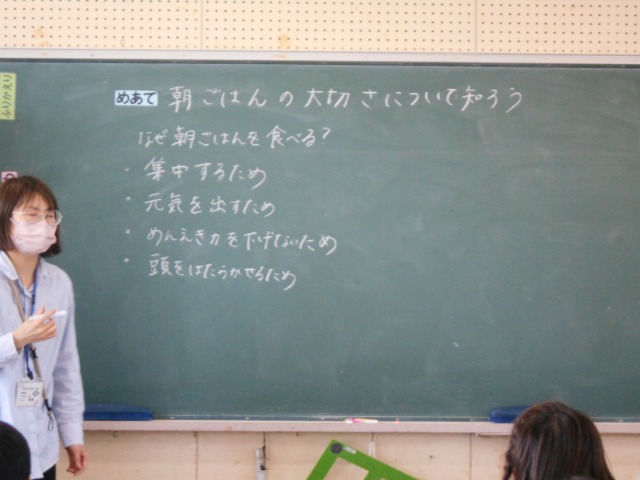 ふりかえり
めあて 朝ごはんの大切さについて知ろう
なぜ朝ごはんを食べる?
・集中するため
・元気を出すため
・めんえき力を下げないため
・頭をはたらかせるため